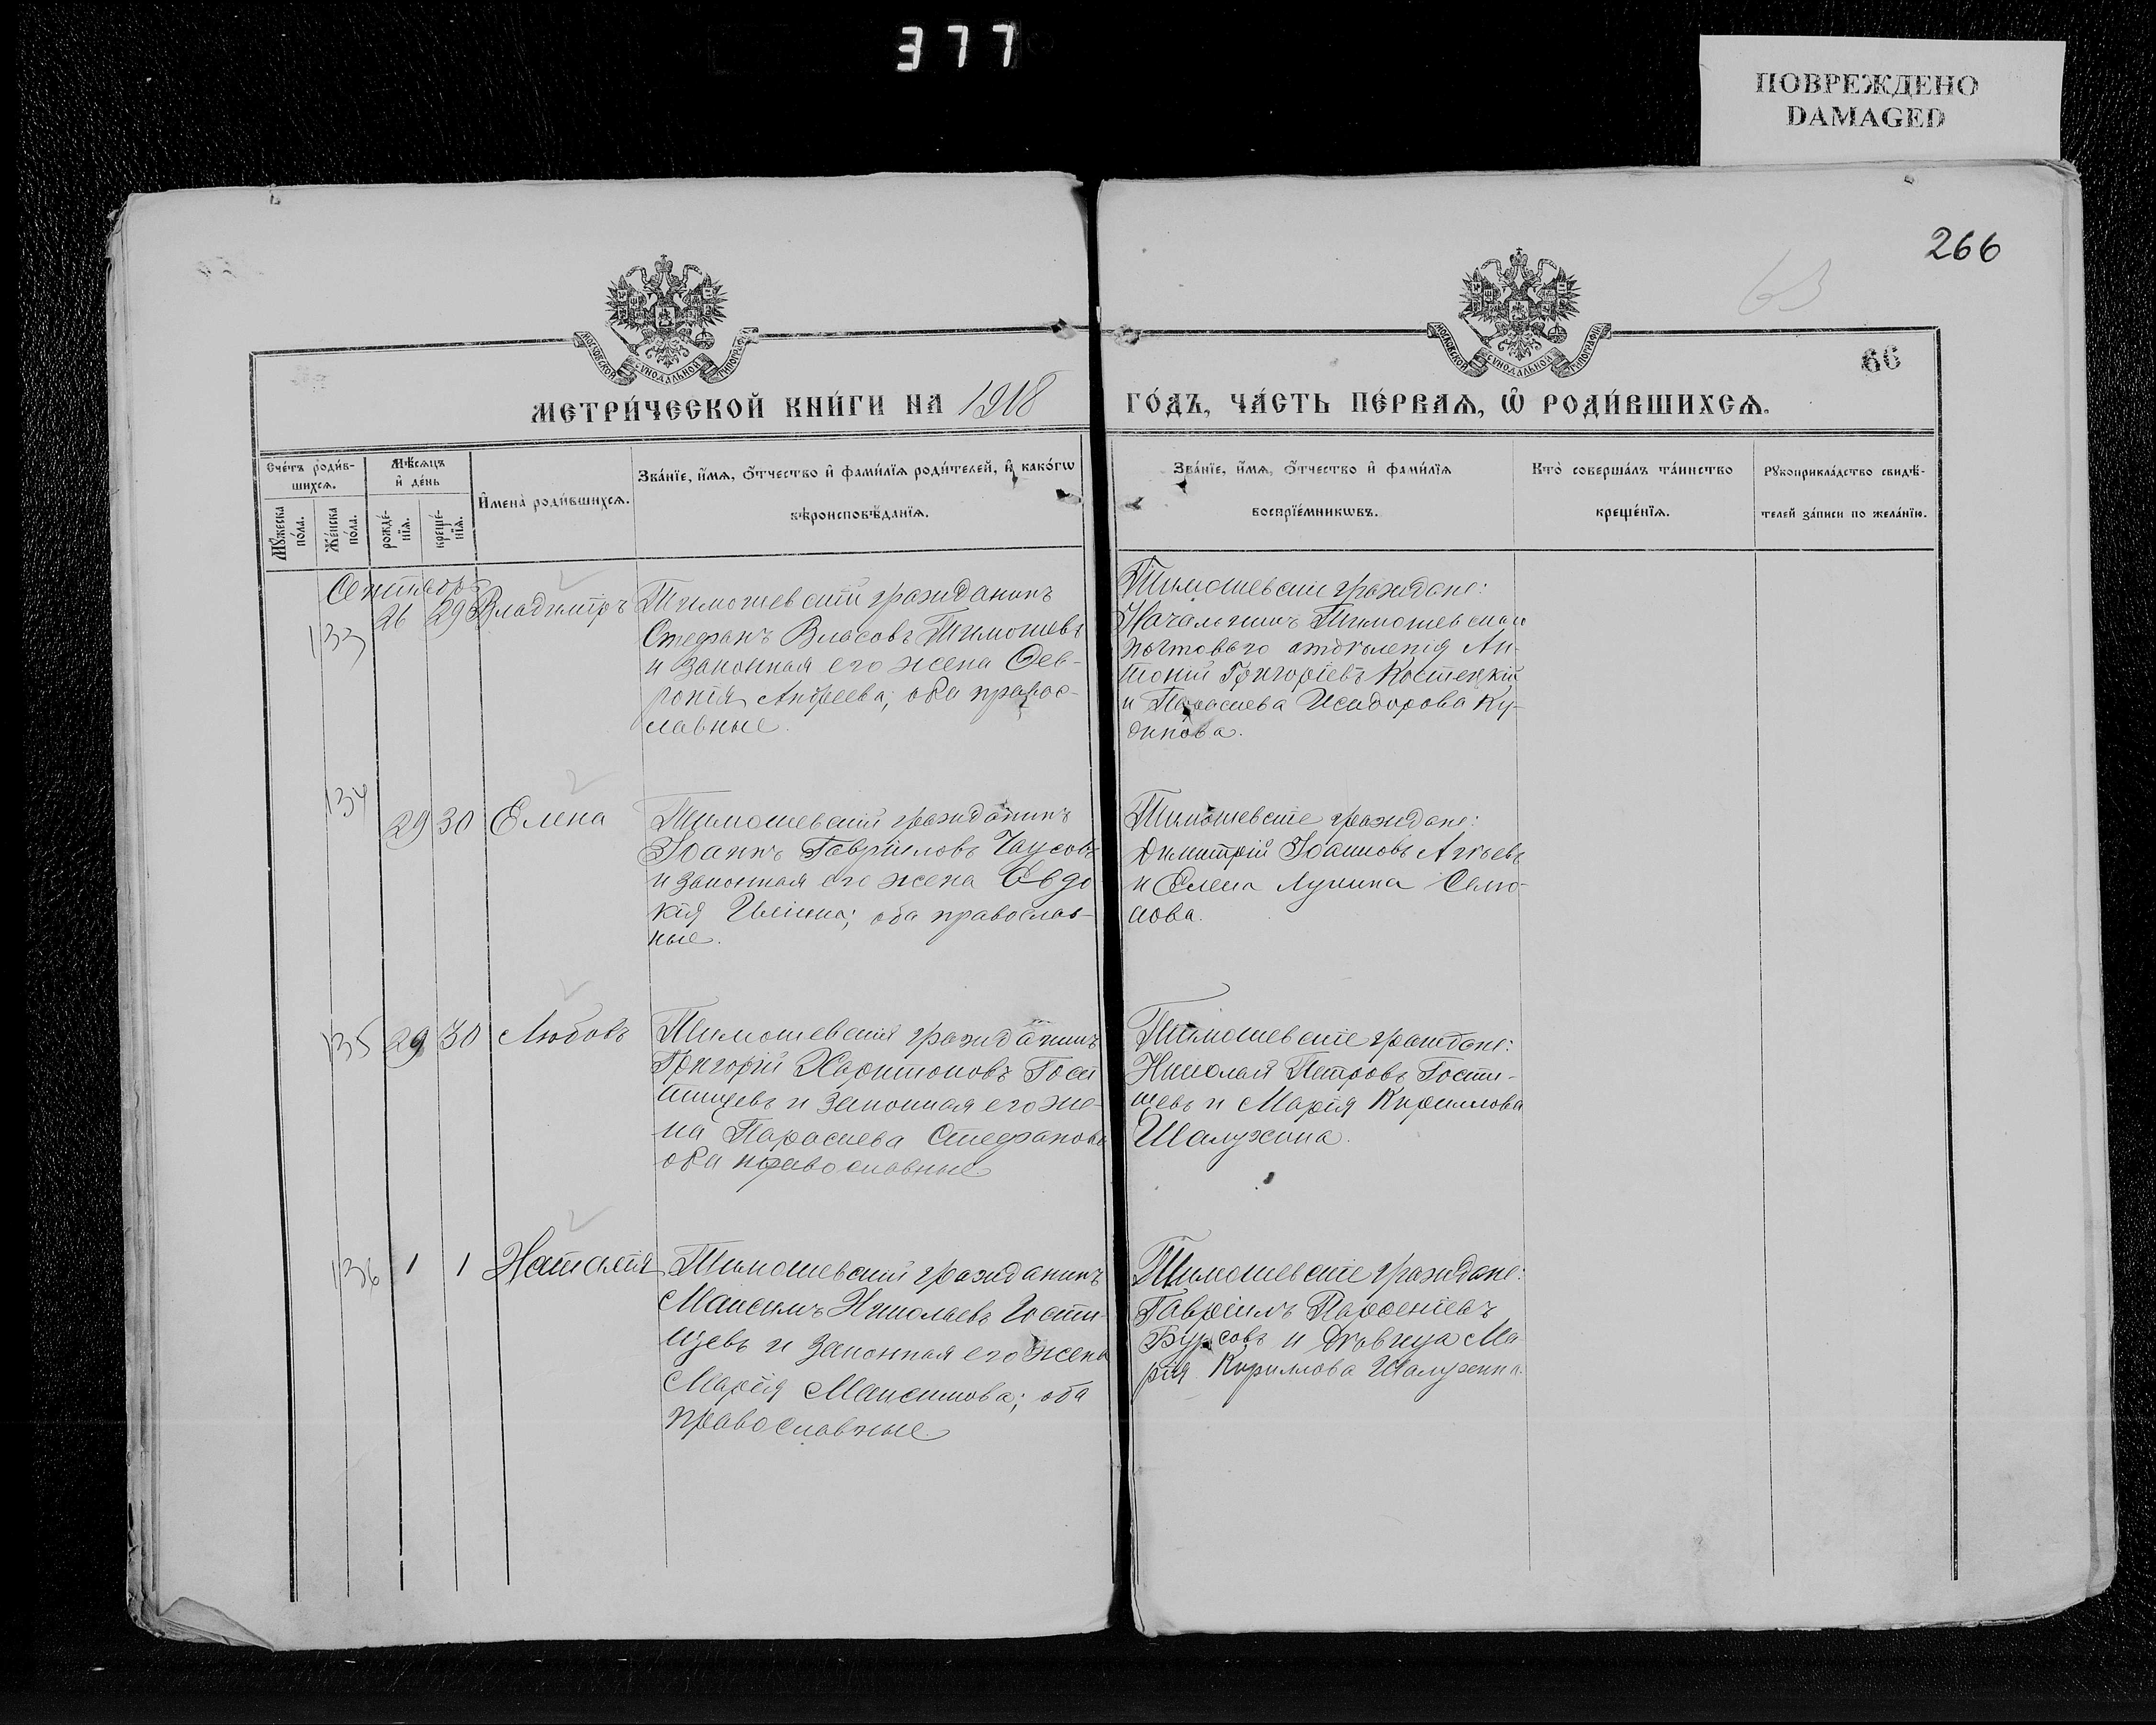 377
ПОВРЕЖДЕНО
DAMAGED
266
63
66
МОСКОВСКОЙ СѴНОДАЛЬНОЙ ТИПОГРАФІИ
МОСКОВСКОЙ СѴНОДАЛЬНОЙ ТИПОГРАФІИ
МЕТРИ́ЧЕСКОЙ КНИ́ГИ НА 1918
ГО́ДЪ, ЧА́СТЬ ПЕ́РВАѦ, Ѡ҆ РОДИ́ВШИХСѦ.
Сче́тъ роди́в-
шихсѧ.
Мꙋ́жеска по́ла.
Же́нска по́ла.
Мѣ́сѧцъ
и҆ де́нь
рожде́-
нїѧ.
креще́-
нїѧ.
И҆мена̀ роди́вшихсѧ.
Зва́нїе, и҆́мѧ, ѻ҆́тчество и҆ фами́лїѧ роди́телей, и҆ како́гѡ
вѣроисповѣ́данїѧ.
Зва́нїе, и҆́мѧ, ѻ҆́тчество и҆ фами́лїѧ
воспрїе́мникѡвъ.
Кто̀ соверша́лъ та́инство
креще́нїѧ.
Рꙋкоприкла́дство свидѣ́-
телей за́писи по жела́нїю.
Сентябрь
133 26 29 Владимiръ
Тимошевскiй гражданинъ
Стефанъ Власовъ Тимошевъ
и законная его жена Фев-
ронiя Андреева; оба правос-
лавные.
Тимошевскiе граждане:
Начальникъ Тимошевскаго
почтоваго отдѣленiя Ан-
тонiй Григорiевъ Костецкiй
и Параскева Исидорова Ку-
динова.
134 29 30 Елена
Тимошевскiй гражданинъ
Iоаннъ Гаврiиловъ Чаусовъ
и законная его жена Евдо
кiя Ильина; оба православ-
ные.
Тимошевскiе граждане:
Димитрiй Iоанновъ Агѣевъ
и Елена Лукина Само-
нова.
135 29 30 Любовь
Тимошевскiй гражданинъ
Григорiй Харитоновъ Гост
тищевъ и законная его же-
на Параскева Стефанова
оба православные
Тимошевскiе граждане:
Николай Петровъ Гости-
щевъ и Марiя Кириллова
Шалухина.
136 1 1 Наталiя
Тимошевскiй гражданинъ
Максимъ Николаевъ Гости-
щевъ и законная его жена
Марiя Максимова; оба
православные.
Тимошевскiе граждане:
Гаврiилъ Парѳенiевъ
Бурсовъ и дѣвица Ма-
рiя Кириллова Шалухина.